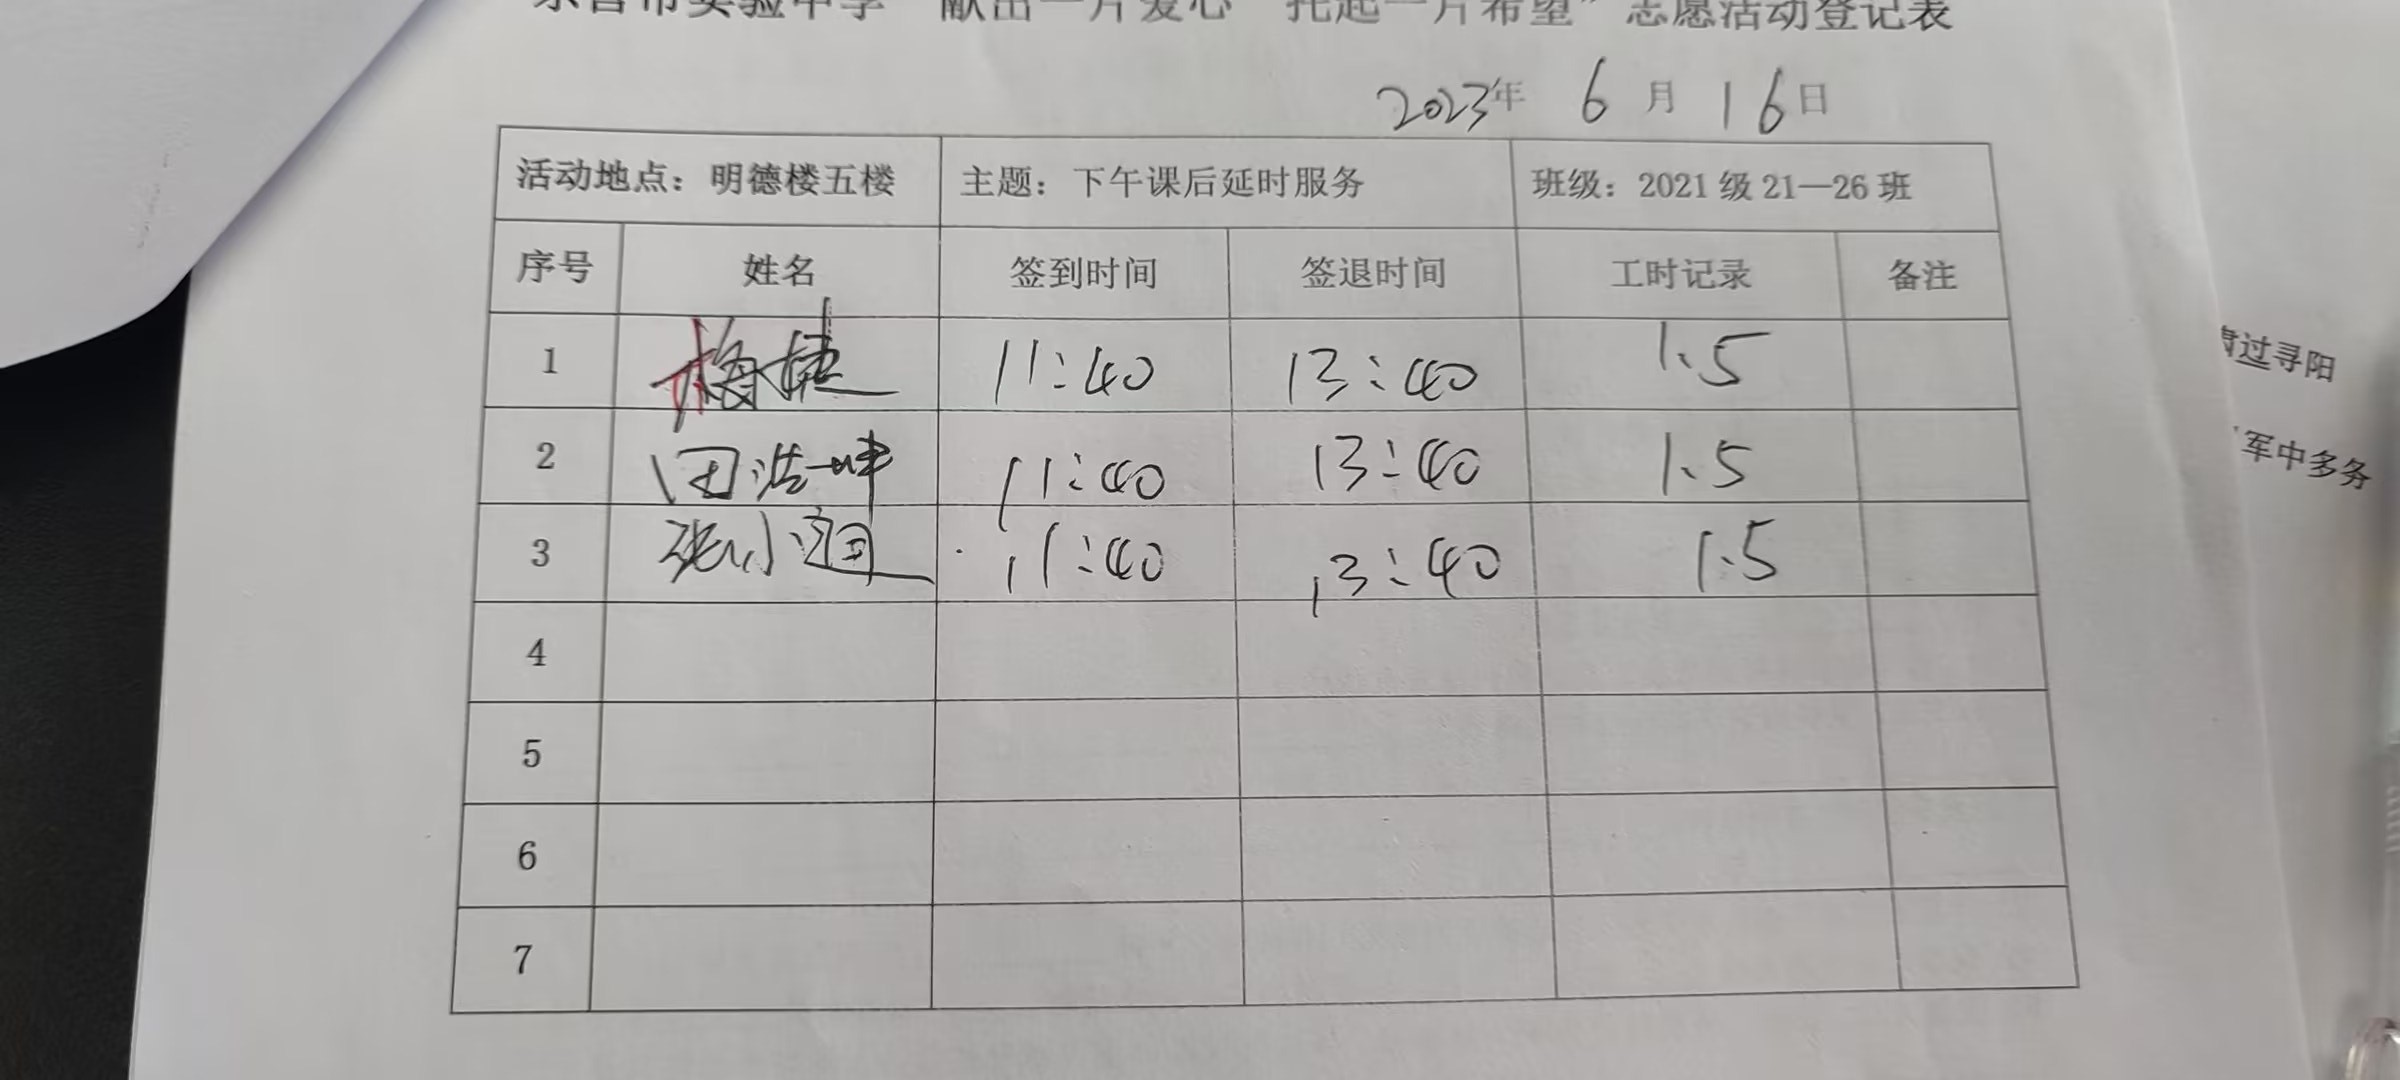 "献出一片爱心 托起一片希望"志愿活动登记表
2023年 6 月 16日
活动地点：明德楼五楼 主题：下午课后延时服务 班级：2021 级 21—26 班
序号 姓名 签到时间 签退时间 工时记录 备注
1 梅捷 11:40 13:40 1.5
2 田浩坤 11:40 13:40 1.5
3 张小 11:40 13:40 1.5
4
5
6
7
过寻阳
军中多务